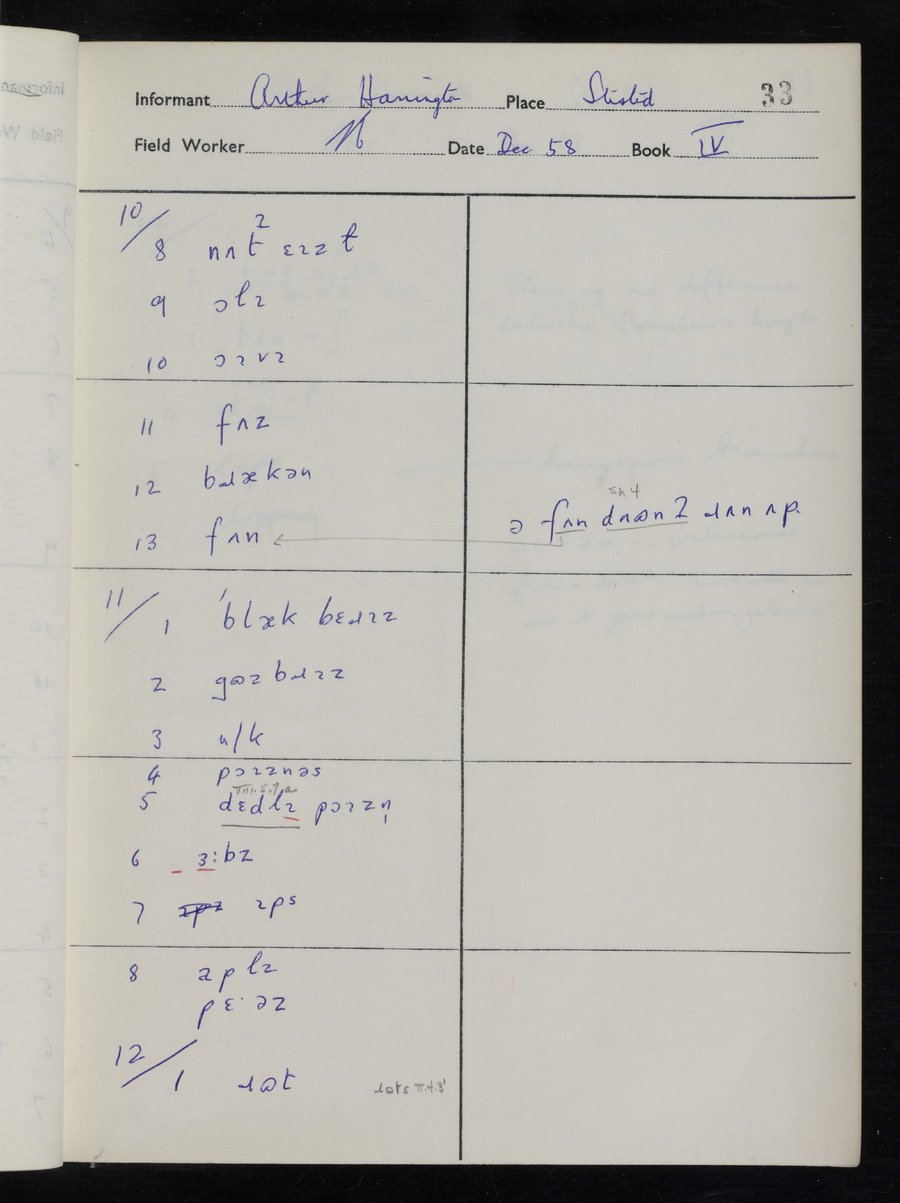 Informant Arthur Harrington Place Stisted 33
Field Worker Date Dec 58 Book IV
10/
8 nʌt ɛɪzɫ
9 ɔlɪ
10 ɔɪvɪ
11 fʌz
12 bɹækən
sn 4
13 fʌn ə fʌn dʌɷn ɹʌn ʌp.
11/
1 ˈblæk bɛɹɪz
2 gɷzbɹɪz
3 n/k
4 pɔɪznəs
5 dɛdlɪ pɔɪzn̩
6 ɜ:bz
7 ɪps
8
pɛ·əz
12/
1 ɹɷt ɹɷts II.4.3'